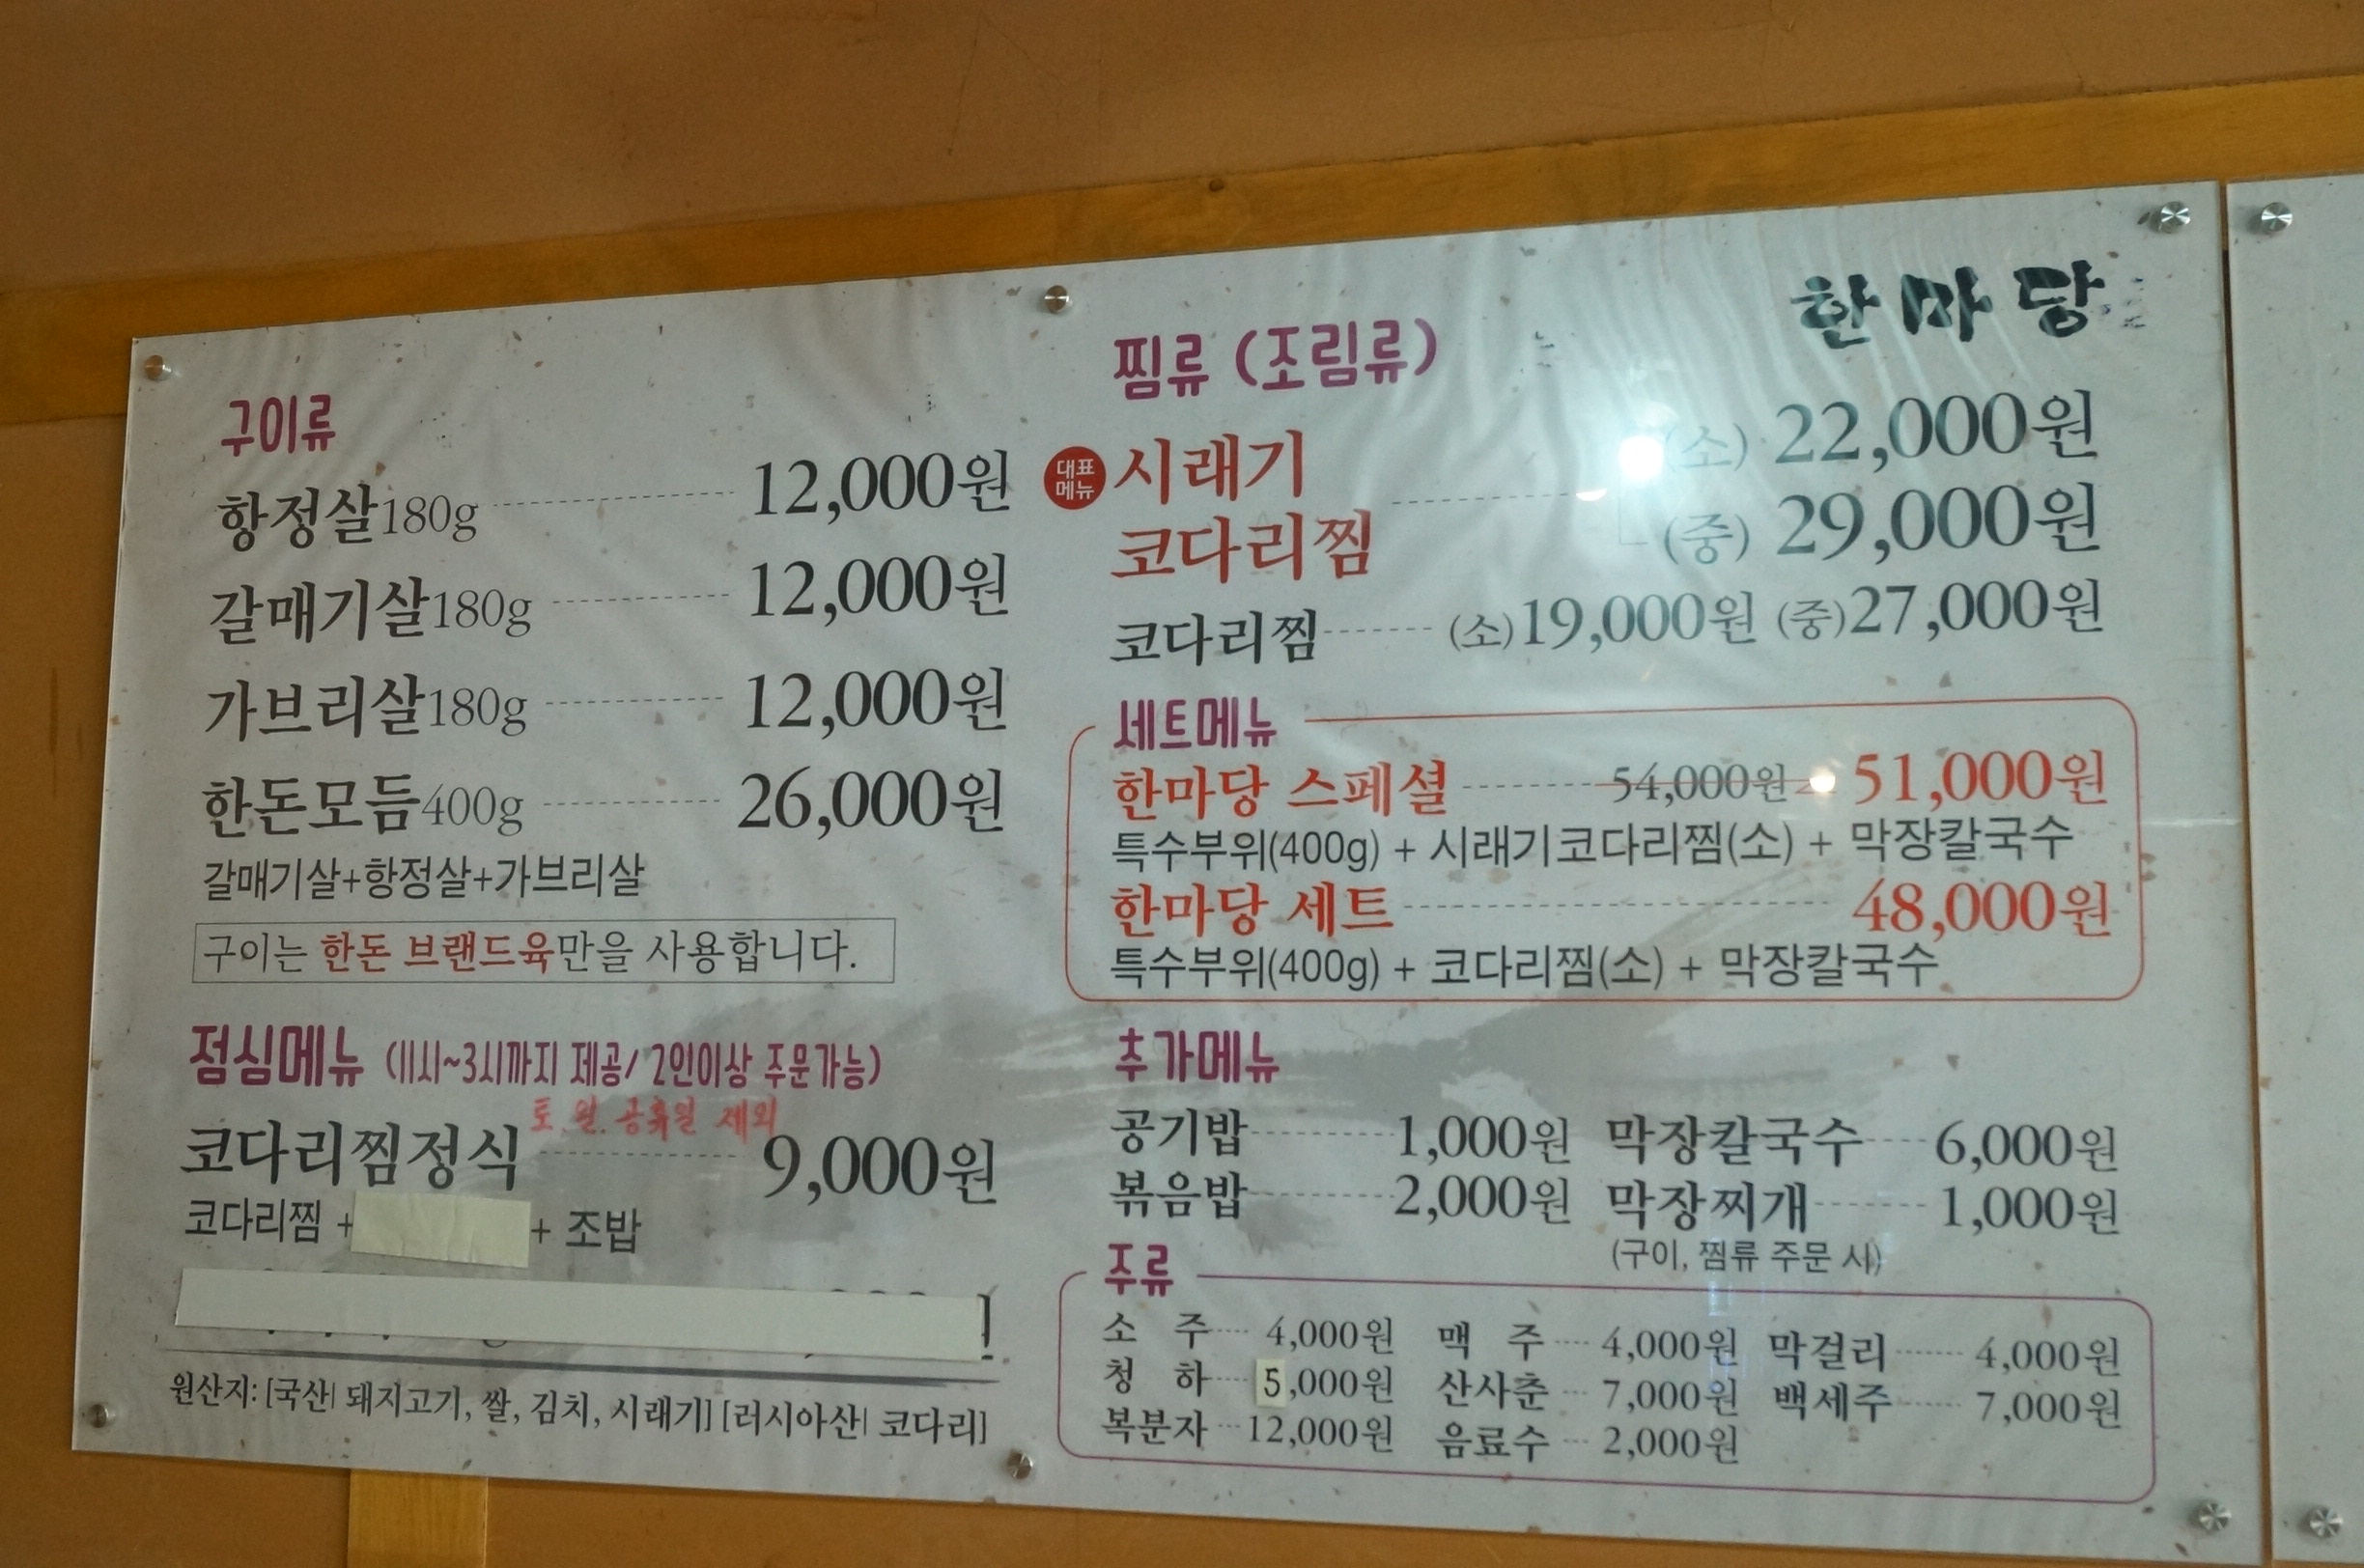 한마당
구이류
항정살180g 12,000원
갈매기살180g 12,000원
가브리살180g 12,000원
한돈모듬400g 26,000원
갈매기살+항정살+가브리살
구이는 한돈 브랜드육만을 사용합니다.
점심메뉴 (11시~3시까지 제공/ 2인이상 주문가능)
토.일.공휴일 제외
코다리찜정식 9,000원
코다리찜 + + 조밥
원산지: [국산| 돼지고기, 쌀, 김치, 시래기] [러시아산| 코다리]
찜류 (조림류)
대표
메뉴
시래기
코다리찜
(소) 22,000원
(중) 29,000원
코다리찜 (소)19,000원 (중)27,000원
세트메뉴
한마당 스페셜 54,000원 51,000원
특수부위(400g) + 시래기코다리찜(소) + 막장칼국수
한마당 세트 48,000원
특수부위(400g) + 코다리찜(소) + 막장칼국수
추가메뉴
공기밥 1,000원 막장칼국수 6,000원
볶음밥 2,000원 막장찌개 1,000원
(구이, 찜류 주문 시)
주류
소 주 4,000원 맥 주 4,000원 막걸리 4,000원
청 하 5,000원 산사춘 7,000원 백세주 7,000원
복분자 12,000원 음료수 2,000원